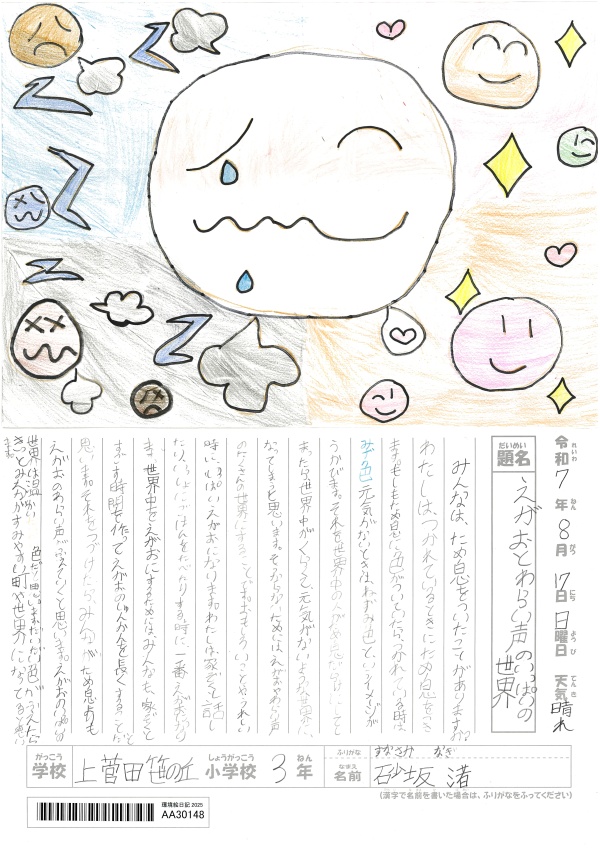 令和7年8月17日日曜日 天気 晴れ
れいわ ねん がつ にち ようび てんき
だいめい
題名
えがおとわらい声のいっぱいの世界
みんなは、ため息をついたことがありますか?
わたしは、つかれているときにため息をつき
ます。もしもため息に色がついていたら、つかれている時は、
みず色、元気がないときは、ねずみ色というイメージが
うかびます。それを世界中の人がため息だらけにしてし
まったら世界中がくらくて元気がないような世界に
なってしまうと思います。そうならないためには、えがおやわらい声
時に いっぱいえがおになります。わたしは、家ぞくと話し
たり、いっしょにごはんをたべたりする時に、一番えがおになり
ます。世界中をえがおにするためには、みんなも、家ぞくと
すごす時間を作って、えがおの時間を長くすること
思います。それをつづけたら、みんなが、ため息よりも
えがおのわらい声がふえていくと思います。
世界は温かい
きっとみんながすみやすい町や世界になってると思い
ます。
がっこう
学校
上菅田笹の丘
しょうがっこう
小学校
3
ねん
年
ふりがな
すなさか なぎ
なまえ
名前
砂坂 渚
(漢字で名前を書いた場合は、ふりがなをふってください)
環境絵日記 2025
AA30148